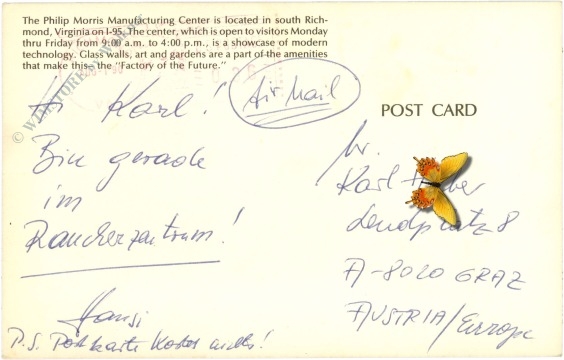 The Philip Morris Manufacturing Center is located in south Rich-
mond, Virginia on I-95. The center, which is open to visitors Monday
thru Friday from 9:00 a.m. to 4:00 p.m., is a showcase of modern
technology. Glass walls, art and gardens are a part of the amenities
that make this the "Factory of the Future."
Hi Karl!
Air Mail
Bin gerade
im
Raucherzentrum!
Hansi
P.S. Postkarte kostet nichts!
POST CARD
Hr.
Karl
Lendplatz 8
A-8020 GRAZ
AUSTRIA/Europe